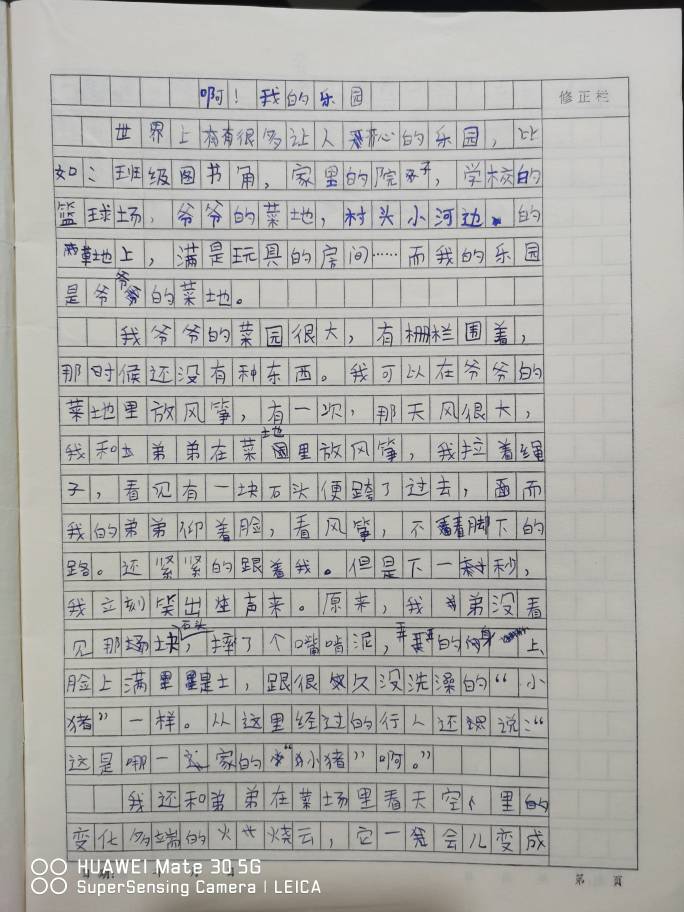 啊！我的乐园
修正栏
世界上有很多让人开心的乐园，比
如：班级图书角，家里的院子，学校的
篮球场，爷爷的菜地，村头小河边的
草地上，满是玩具的房间……而我的乐园
是爷爷的菜地。
我爷爷的菜园很大，有栅栏围着，
那时候还没有种东西。我可以在爷爷的
菜地里放风筝，有一次，那天风很大，
我和弟弟在菜地里放风筝，我拉着绳
子，看见有一块石头便跨了过去，而
我的弟弟仰着脸，看风筝，不看脚下的
路。还紧紧的跟着我。但是下一秒，
我立刻笑出声来。原来，我弟没看
见那块石头，摔了个嘴啃泥，的身上、
脸上满是土，跟很久没洗澡的“小
猪”一样。从这里经过的行人还说：“
这是哪一家的“小猪”啊。”
我还和弟弟在菜场里看天空里的
变化多端的火烧云，它一会儿变成
HUAWEI Mate 30 5G
SuperSensing Camera | LEICA
第 页